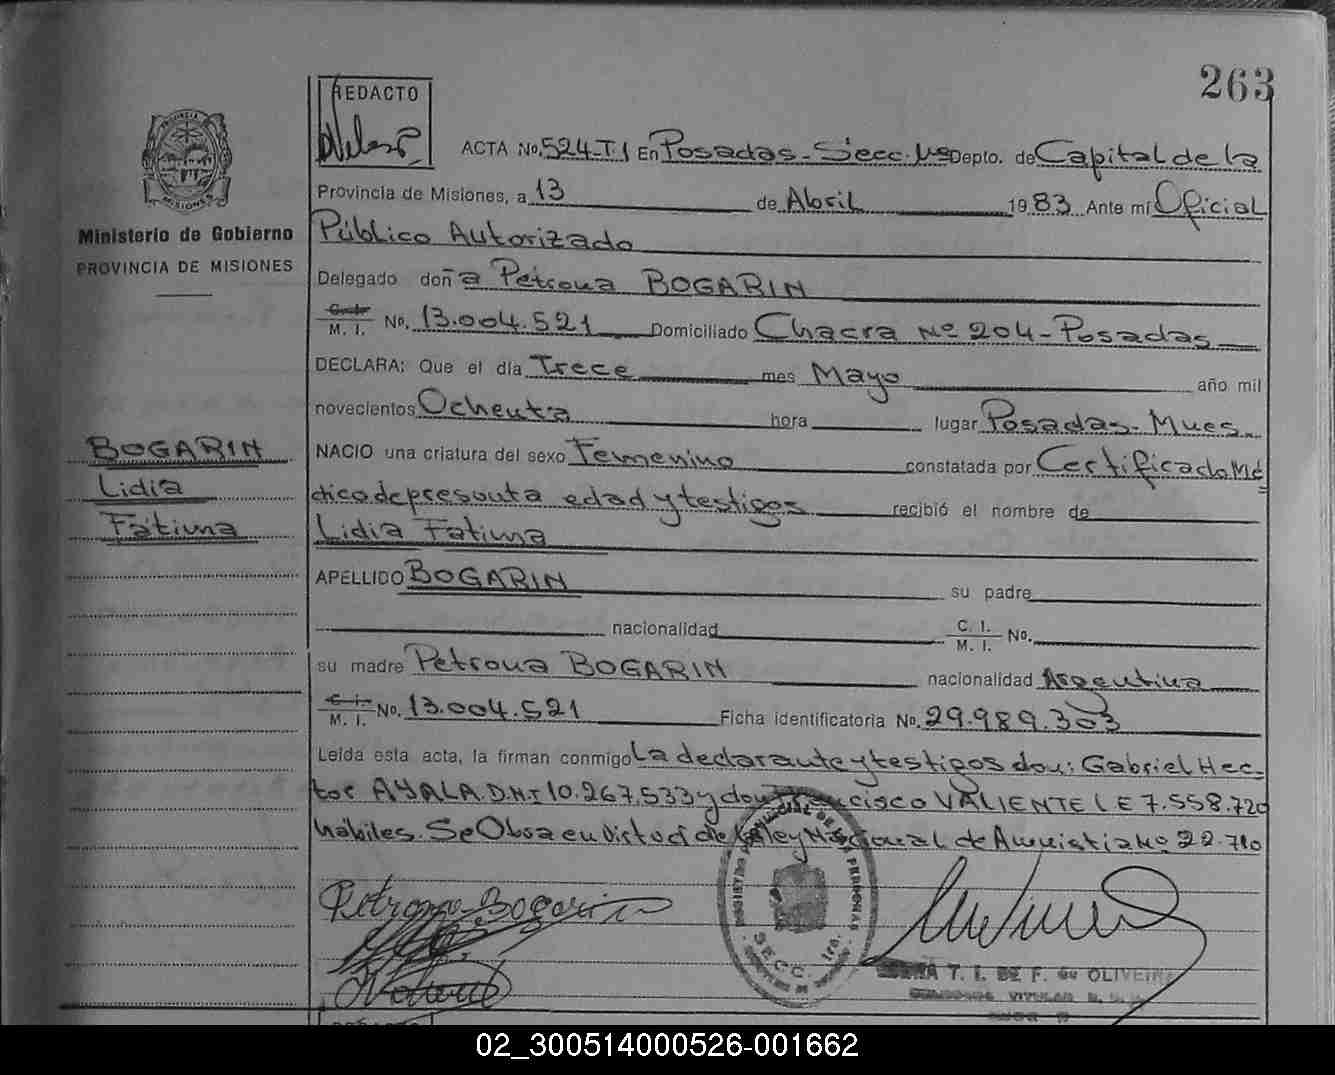 263
REDACTO
ACTA No. 524-T I En Posadas - Secc. 1ª Depto. de Capital de la
Provincia de Misiones, a 13 de Abril 1983 Ante mí Oficial
Público Autorizado
Delegado doña Petrona BOGARIN
M. I. No. 13.004.521 Domiciliado Chacra Nº 204 - Posadas
DECLARA: Que el día Trece mes Mayo año mil
novecientos Ochenta hora lugar Posadas - Mnes.
NACIO una criatura del sexo Femenino constatada por Certificado Mé
dico de presunta edad y testigos recibió el nombre de
Lidia Fatima
APELLIDO BOGARIN su padre
nacionalidad C. I. M. I. No.
su madre Petrona BOGARIN nacionalidad Argentina
C. I. M. I. No. 13.004.521 Ficha identificatoria No. 29.989.303
Leída esta acta, la firman conmigo La declarante y testigos don: Gabriel Hec-
tor AYALA D.N.I 10.267.533 y don Francisco VALIENTE L E 7.558.720
hábiles. Se Obra en virtud de la ley Nacional de Amnistia Nº 22.710
Petrona Bogarin
SECC. 1ra.
T. I. DE F. de OLIVEIRA
PROVINCIA
MISIONES
Ministerio de Gobierno
PROVINCIA DE MISIONES
BOGARIN
Lidia
Fátima
02_300514000526-001662